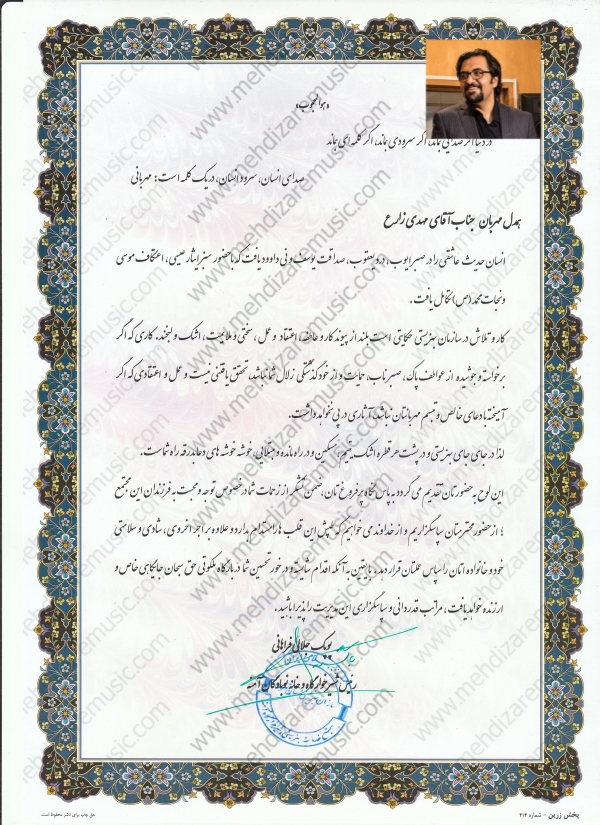 «هوالمحبوب»
در دنیا اگر صدایی بماند، اگر سرودی بماند، اگر کلمه ای بماند
صدای انسان، سرود انسان، در یک کلمه است: مهربانی
همدل مهربان جناب آقای مهدی زارع
انسان حدیث عاشقی را در صبر ایوب، درد یعقوب، صداقت یوسف و نی داوود یافت که با حضور سبز ایثار عیسی، اعتکاف موسی
و نجات محمد (ص) تکامل یافت.
کار و تلاش در سازمان بهزیستی حکایتی است بلند از پیوند کار و عاطفه، اعتقاد و عمل، سختی و ملایمت، اشک و لبخند. کاری که اگر
برخواسته و جوشیده از عواطف پاک، صبر ناب، حمایت و از خود گذشتگی زلال شما نباشد، تحقق یافتنی نیست و عمل و اعتقادی که اگر
آمیخته با دعای خالص و تبسم مهربانتان نباشد، آثاری در پی نخواهد داشت.
لذا در جای جای بهزیستی و در پشت هر قطره اشک یتیم، مسکین و در راه مانده و مبتلایی، خوشه خوشه های دعا بدرقه راه شماست.
این لوح به حضورتان تقدیم می گردد به پاس نگاه پر فروغتان، ضمن تشکر از زحمات شما در خصوص توجه و محبت به فرزندان این مجتمع
؛ از حضور محترمتان سپاسگزاریم و از خداوند می خواهیم که تپش این قلب ها را مستدام بدارد و علاوه بر اجر اخروی، شادی و سلامتی
خود و خانواده اتان را سپاس عملتان قرار دهد، با یقین به آنکه اقدام شایسته و در خور تحسین شما در بارگاه ملکوتی حق سبحان جایگاهی خاص و
ارزنده خواهد یافت، مراتب قدردانی و سپاسگزاری این مدیریت را پذیرا باشید.
پوپک جلالی فراهانی
رئیس شیرخوارگاه و خانه نوباوگان آمنه
پخش زرین - شماره ۲۱۲
حق چاپ برای ناشر محفوظ است
www.mehdizaremusic.com